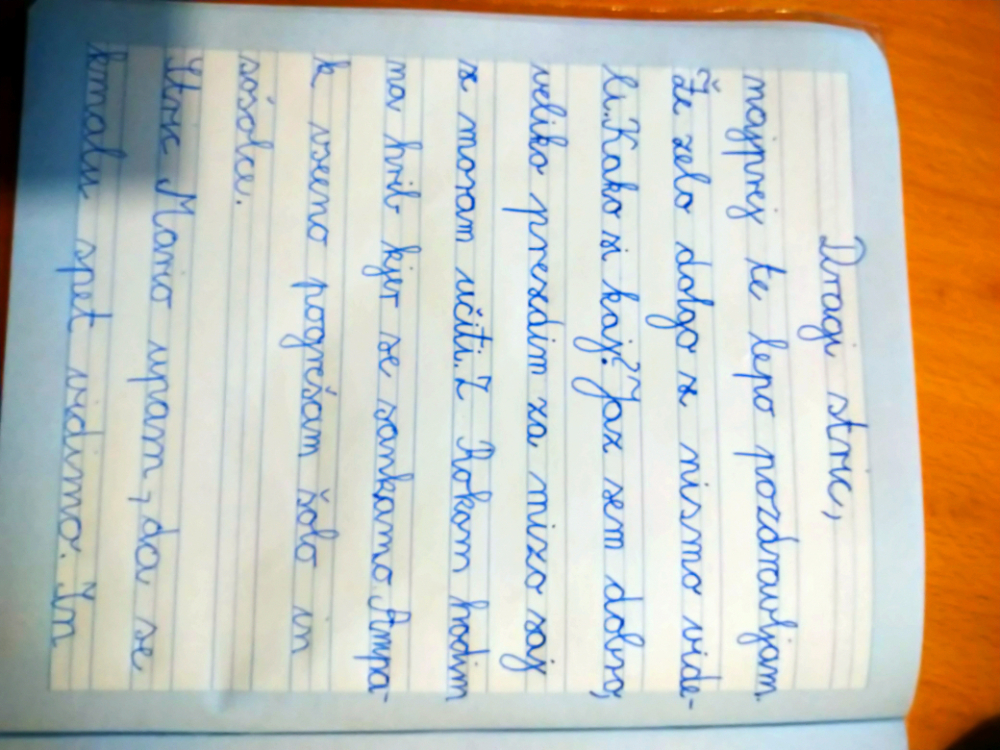 Dragi stric,
najprej te lepo pozdravljam.
Že zelo dolgo se nismo vide-
li. Kako si kaj? Jaz sem dobro,
veliko presedim za mizo saj
se moram učiti. Z Rokom hodim
na hrib kjer se sankamo. Ampa-
k vseeno pogrešam šolo in
sošolce.
Stric Mario upam, da se
kmalu spet vidimo. In